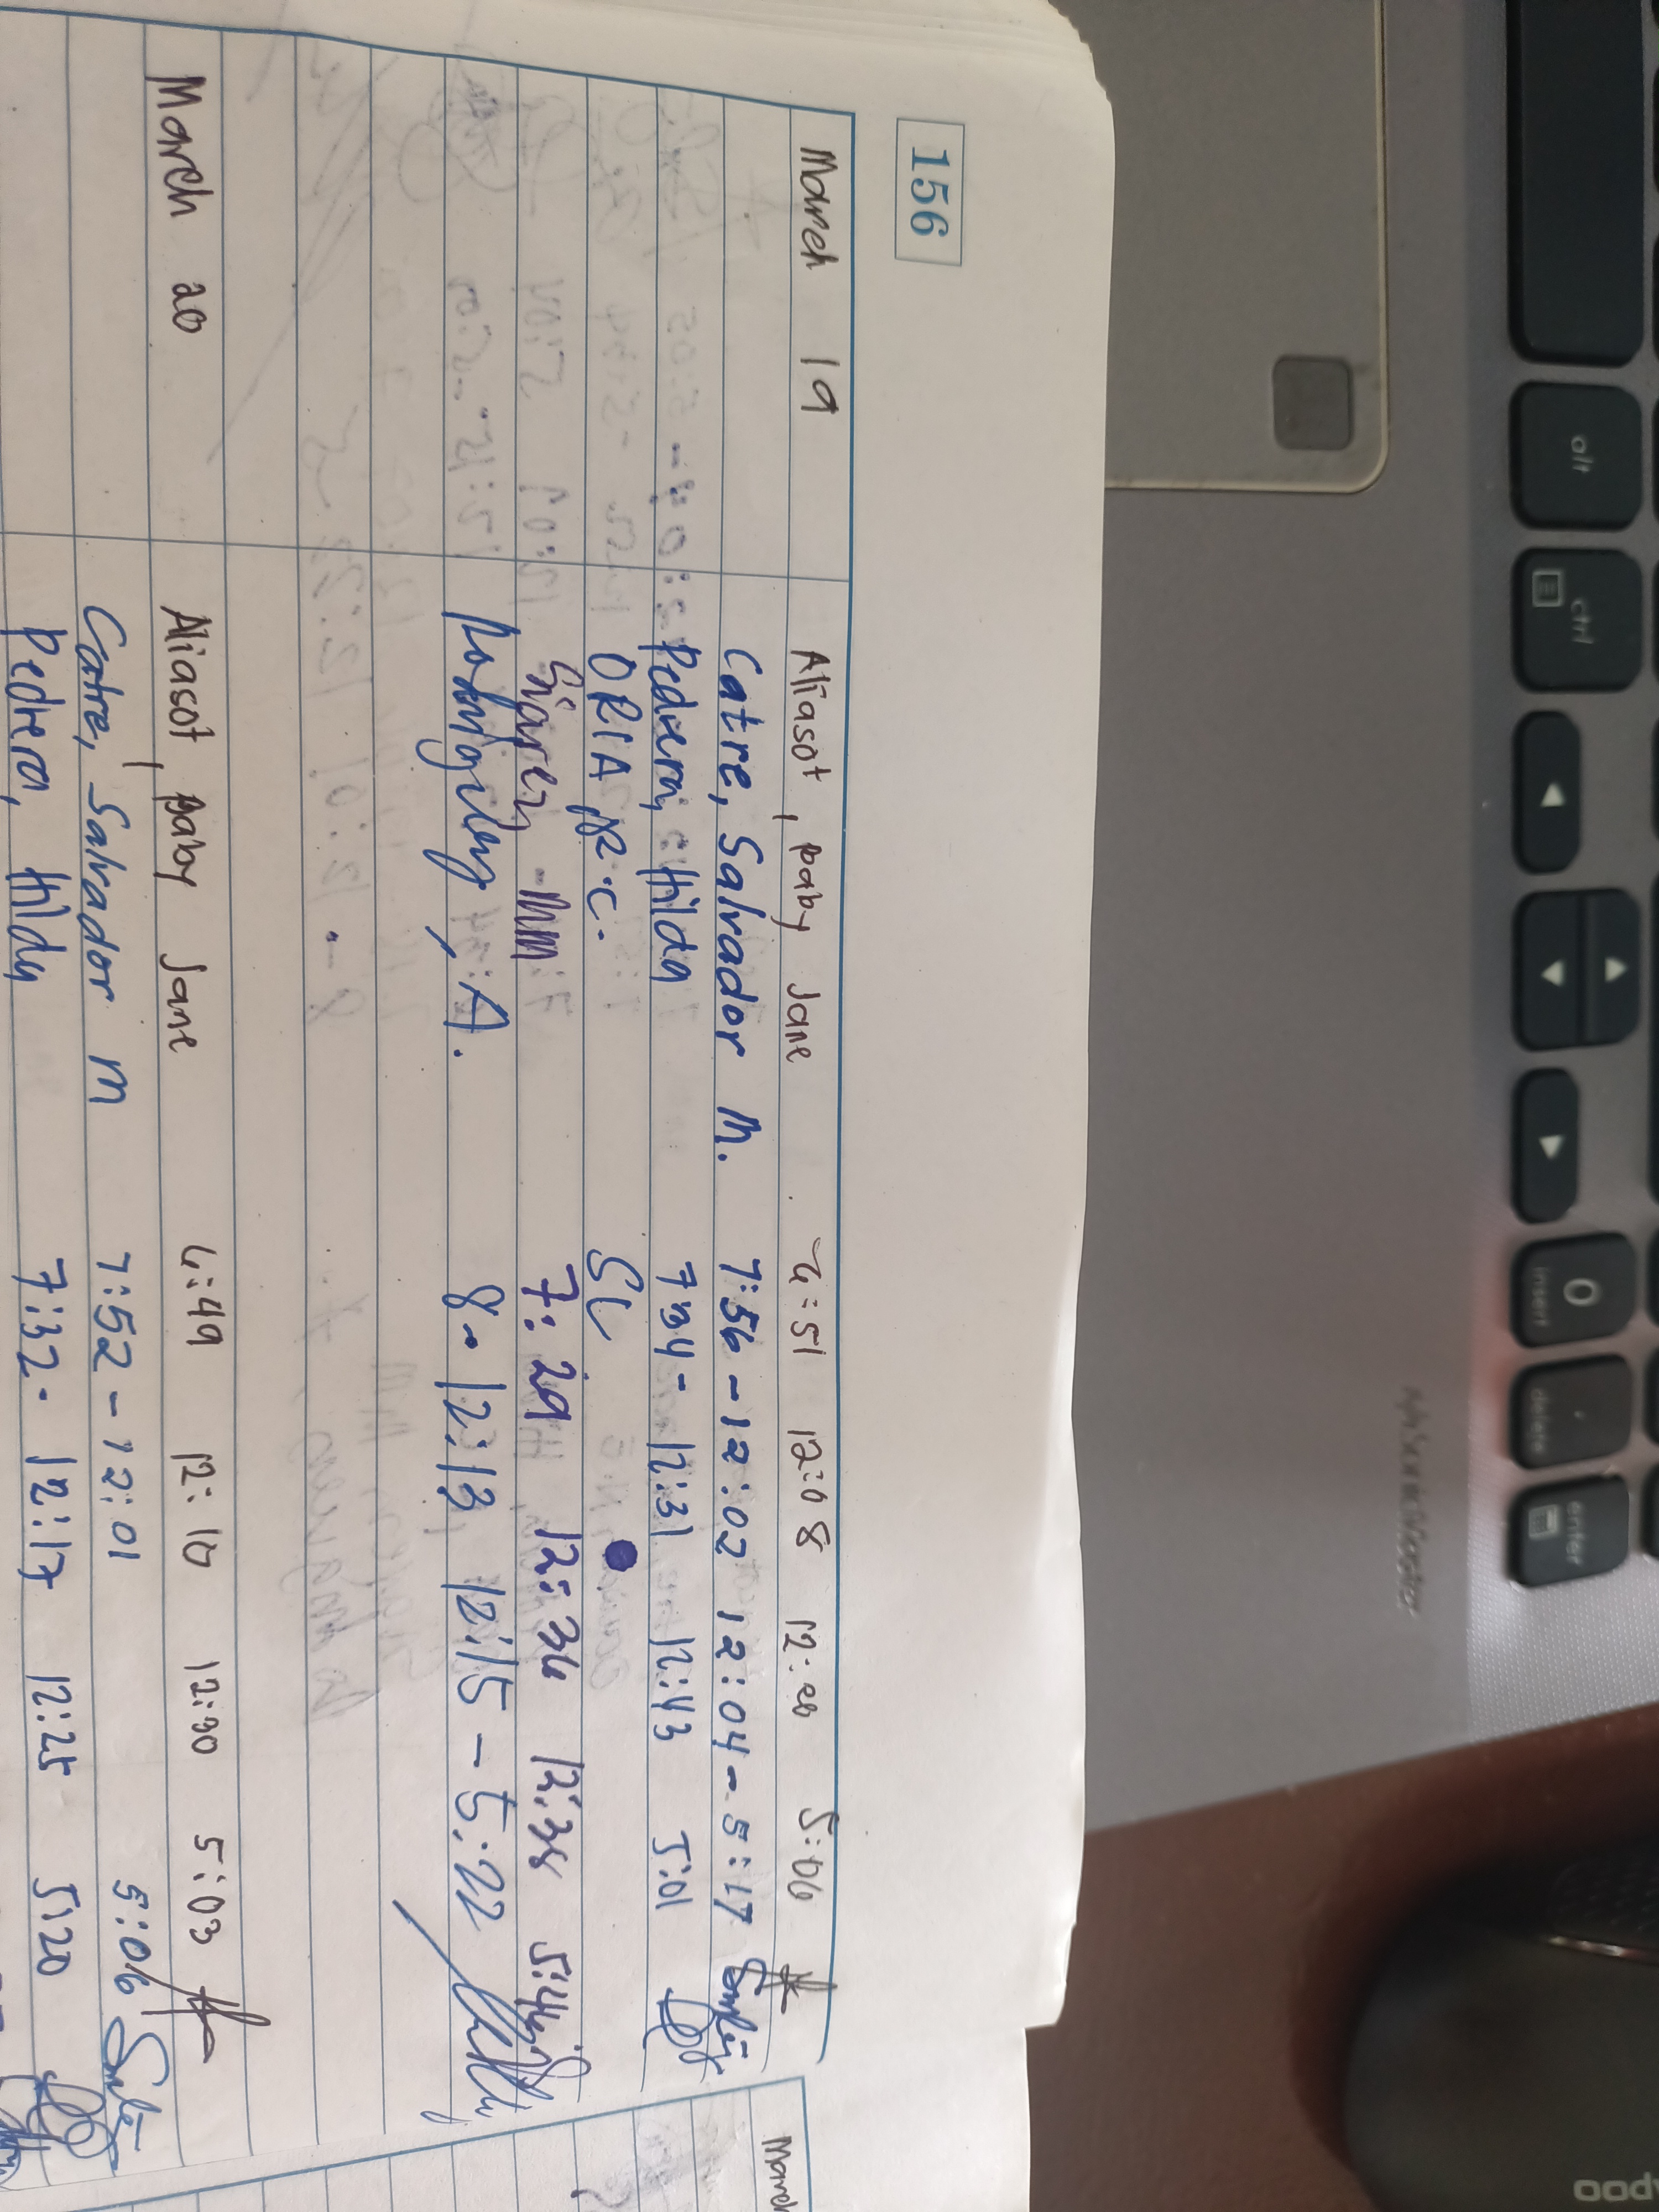 156
March 19 Aliasot, baby Jane 6:51 12:08 12:20 5:06
Catre, Salvador M. 7:56 - 12:02 12:04 - 5:17
Pedrera, Hilda 7:34 - 12:31 12:43 5:01
ORIA R.C. SL
7:29 12:36 12:38 5:44
A. 8 - 12:13 12:15 - 5:22
March 20 Aliasot, baby Jane 6:49 12:10 12:30 5:03
Catre, Salvador M 7:52 - 12:01 5:06
Pedrera, Hilda 7:32 - 12:17 12:25 5:20
March
alt
ctrl
0
insert
.
delete
enter